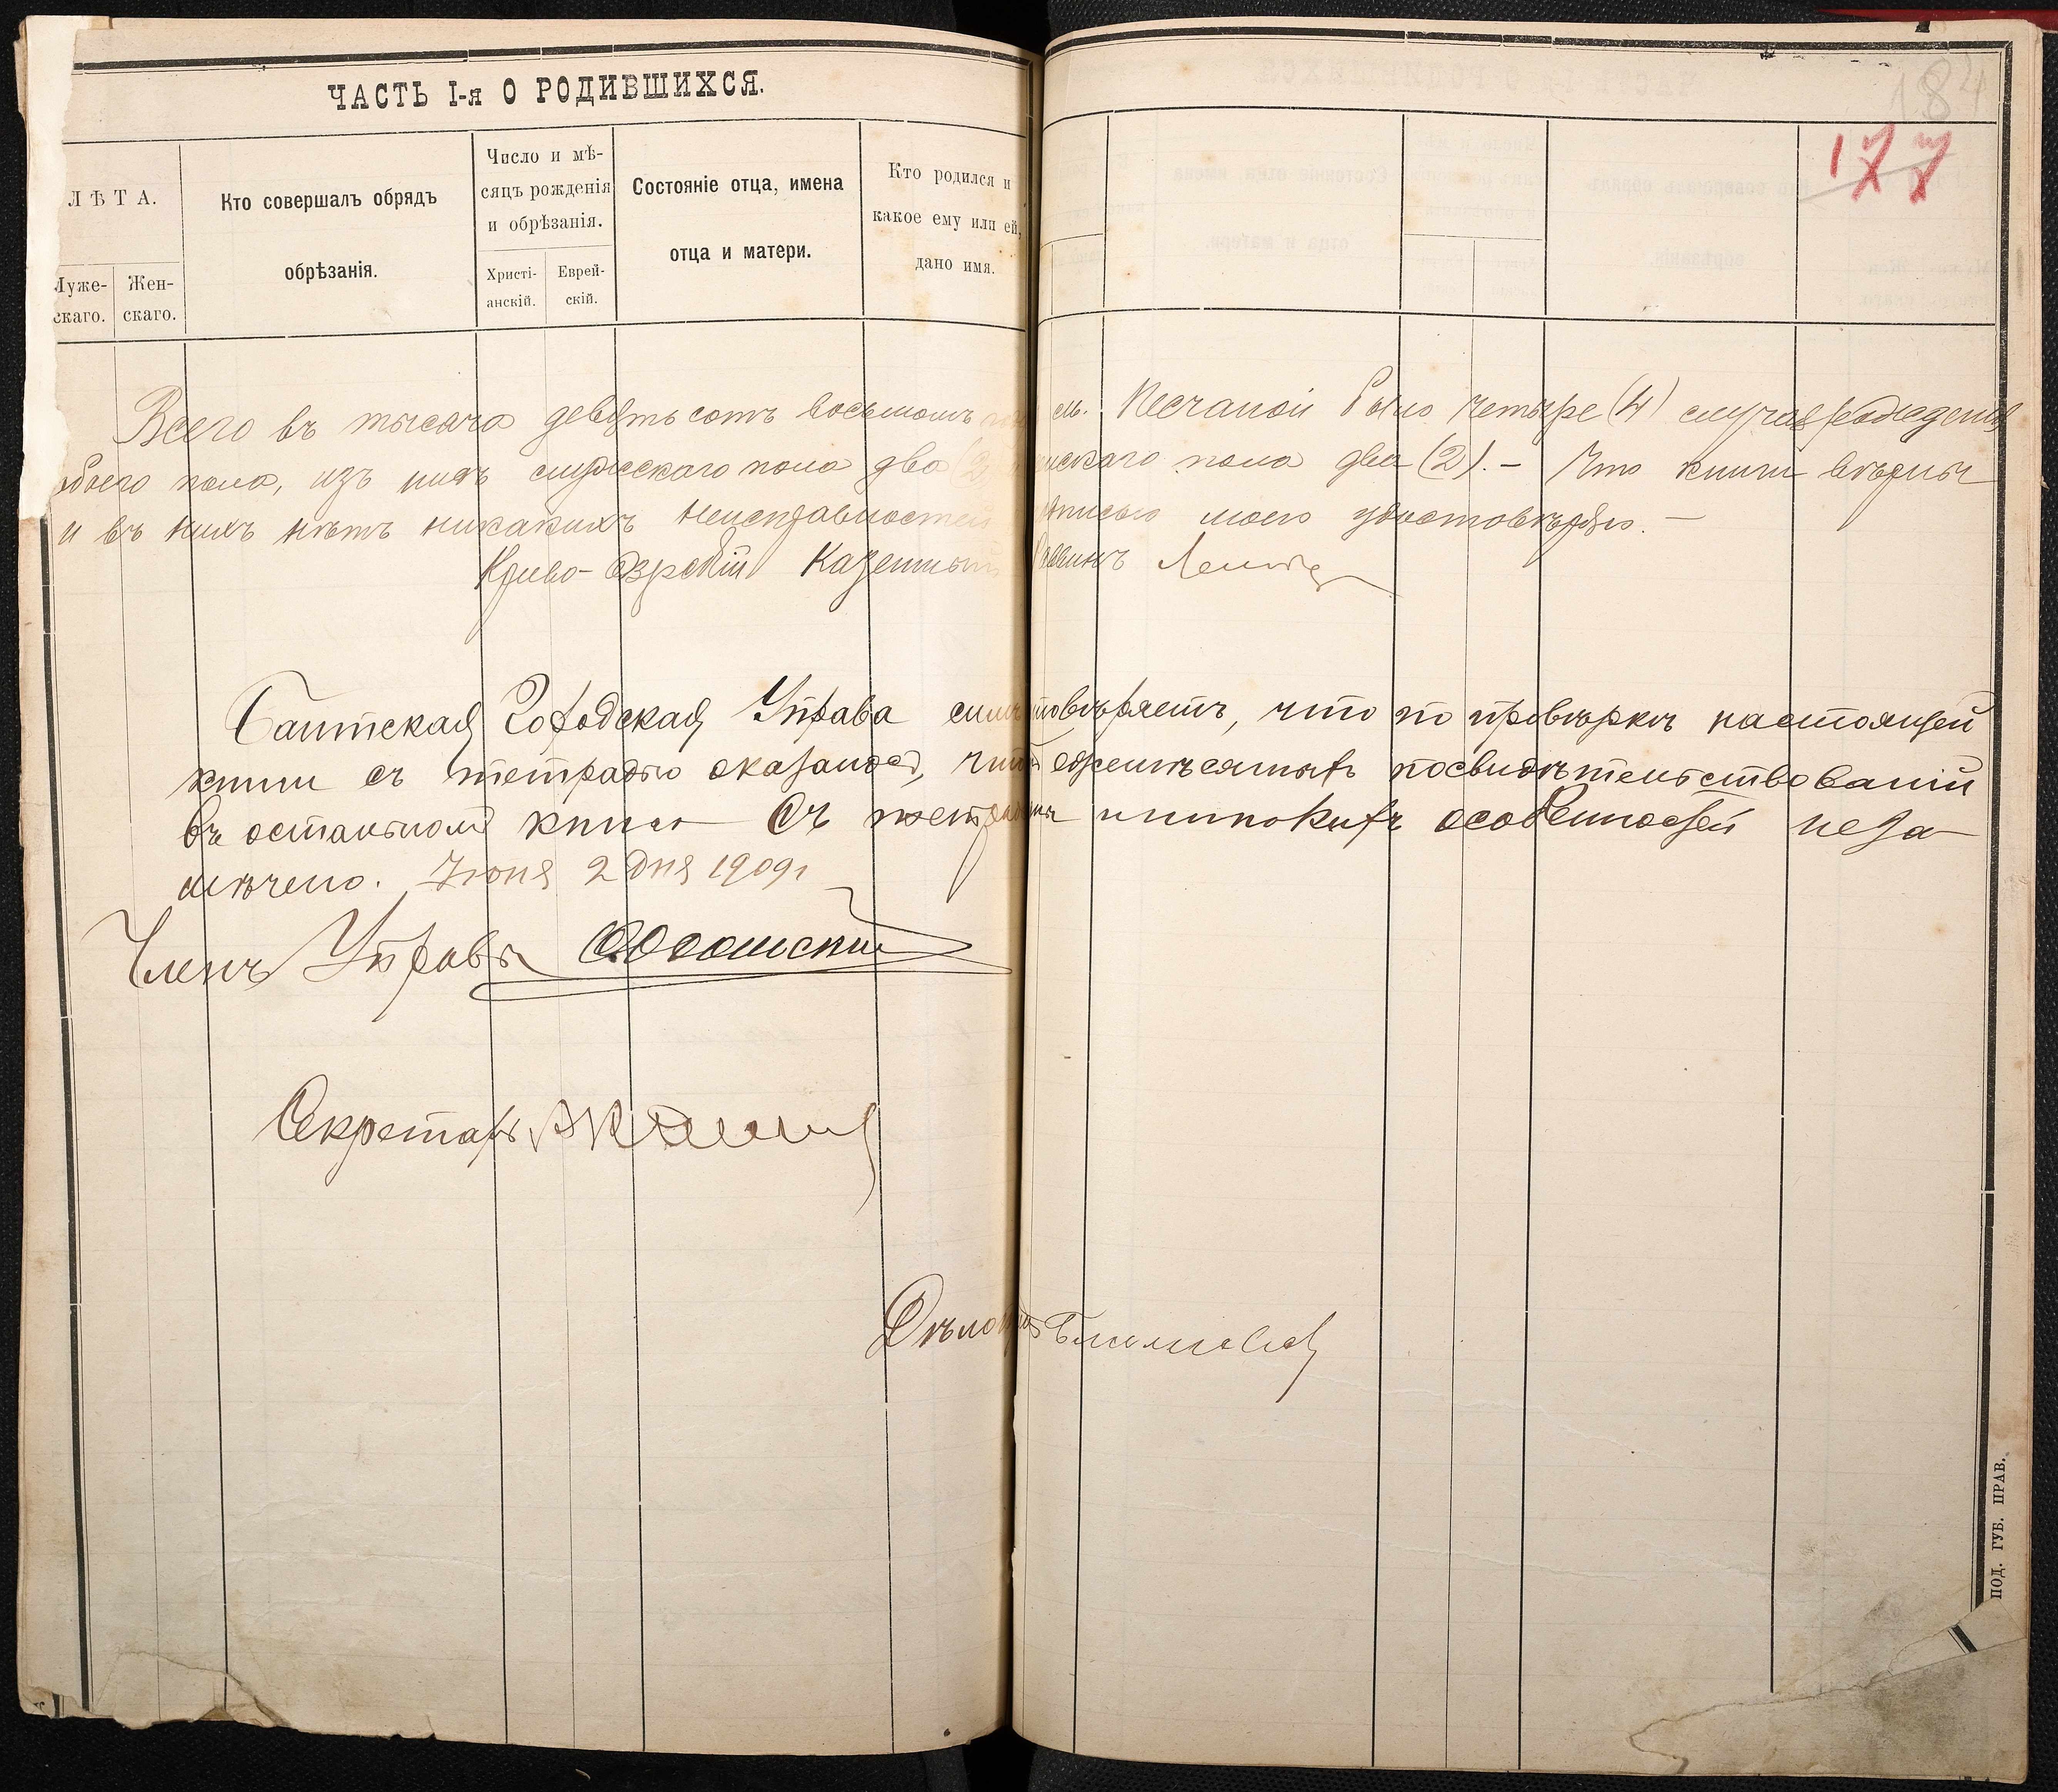 ЧАСТЬ I-я О РОДИВШИХСЯ.
184
177
ЛѢТА.
Муже-
скаго.
Жен-
скаго.
Кто совершалъ обрядъ
обрѣзанія.
Число и мѣ-
сяцъ рожденія
и обрѣзанія.
Христі-
анскій.
Еврей-
скій.
Состояніе отца, имена
отца и матери.
Кто родился и
какое ему или ей,
дано имя.
Всего въ тысяча девятьсотъ восьмомъ м. Песчаной было четыре (4) случая рожденія
обоего пола, изъ нихъ мужескаго пола два женскаго пола два (2). – Что книги вѣрны
и въ нихъ нѣтъ никакихъ неисправностей подписью моею удостовѣряю. –
Криво-Озерскій Казенный Раввинъ
Балтская Городская Управа симъ удостовѣряетъ, что по провѣркѣ настоящей
книги съ тетрадью оказалось, что ежемѣсячныхъ посвидѣтельствованій
въ остальномъ книга съ тетрадью никакихъ особенностей неза-
мѣчено. Іюня 2 дня 1909 г
Членъ Управы
Секретарь
Дѣлопр
ПОД. ГУБ. ПРАВ.